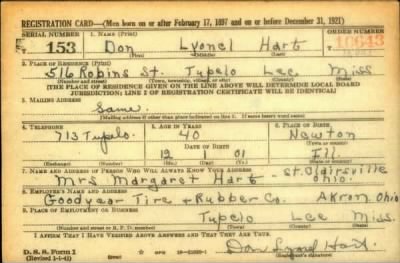 REGISTRATION CARD—(Men born on or after February 17, 1897 and on or before December 31, 1921)
SERIAL NUMBER 1. NAME (Print) ORDER NUMBER
T 153 Don Lyonel Hart 10643
(First) (Middle) (Last)
2. PLACE OF RESIDENCE (Print)
516 Robins St. Tupelo Lee Miss
(Number and street) (Town, township, village, or city) (County) (State)
[THE PLACE OF RESIDENCE GIVEN ON THE LINE ABOVE WILL DETERMINE LOCAL BOARD
JURISDICTION; LINE 2 OF REGISTRATION CERTIFICATE WILL BE IDENTICAL]
3. MAILING ADDRESS
Same.
(Mailing address if other than place indicated on line 2. If same insert word same)
4. TELEPHONE 5. AGE IN YEARS 6. PLACE OF BIRTH
713 Tupelo. 40 Newton
DATE OF BIRTH (Town or county)
12 1 01 Ill.
(Exchange) (Number) (Mo.) (Day) (Yr.) (State or country)
7. NAME AND ADDRESS OF PERSON WHO WILL ALWAYS KNOW YOUR ADDRESS
Mrs Margaret Hart - St. Clairsville Ohio.
8. EMPLOYER'S NAME AND ADDRESS
Goodyear Tire + Rubber Co. Akron Ohio
9. PLACE OF EMPLOYMENT OR BUSINESS
Tupelo Lee Miss.
(Number and street or R. F. D. number) (Town) (County) (State)
I AFFIRM THAT I HAVE VERIFIED ABOVE ANSWERS AND THAT THEY ARE TRUE.
D. S. S. Form 1
(Revised 1-1-42) (over) Don Lyonel Hart.
(Registrant's signature)